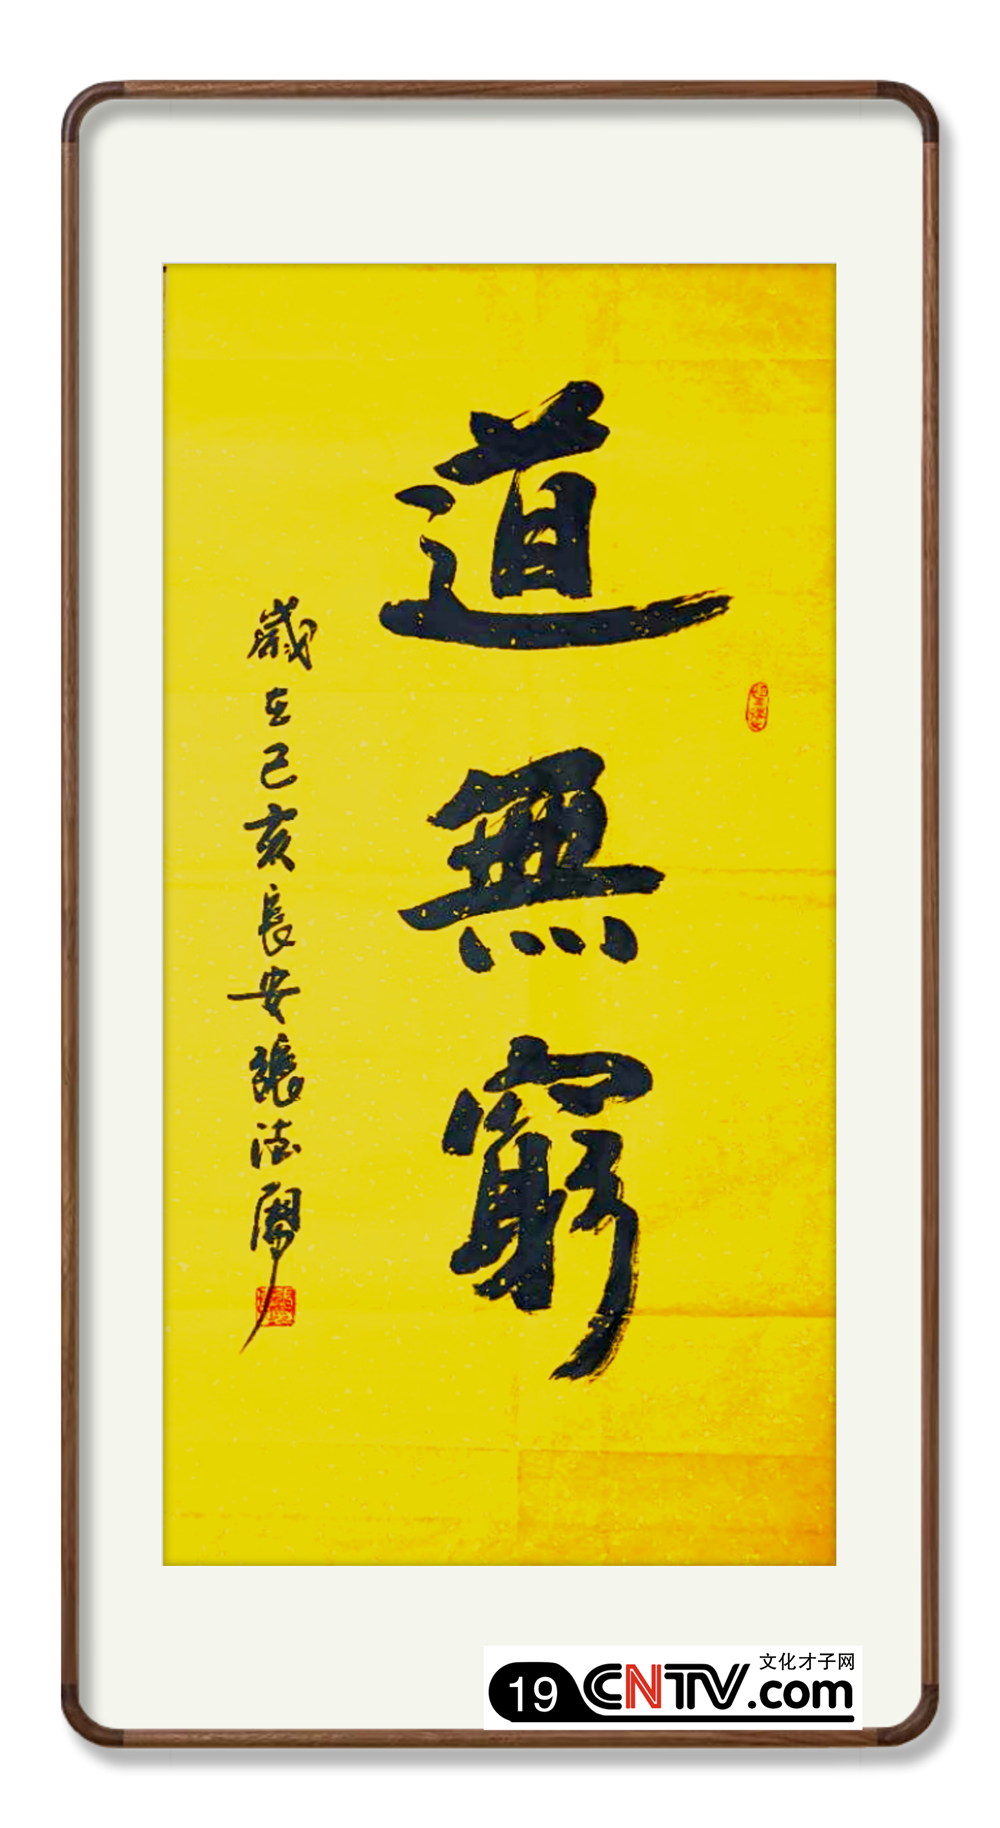 道無窮
歲在己亥長安張法
文化才子网
19 CNTV.com